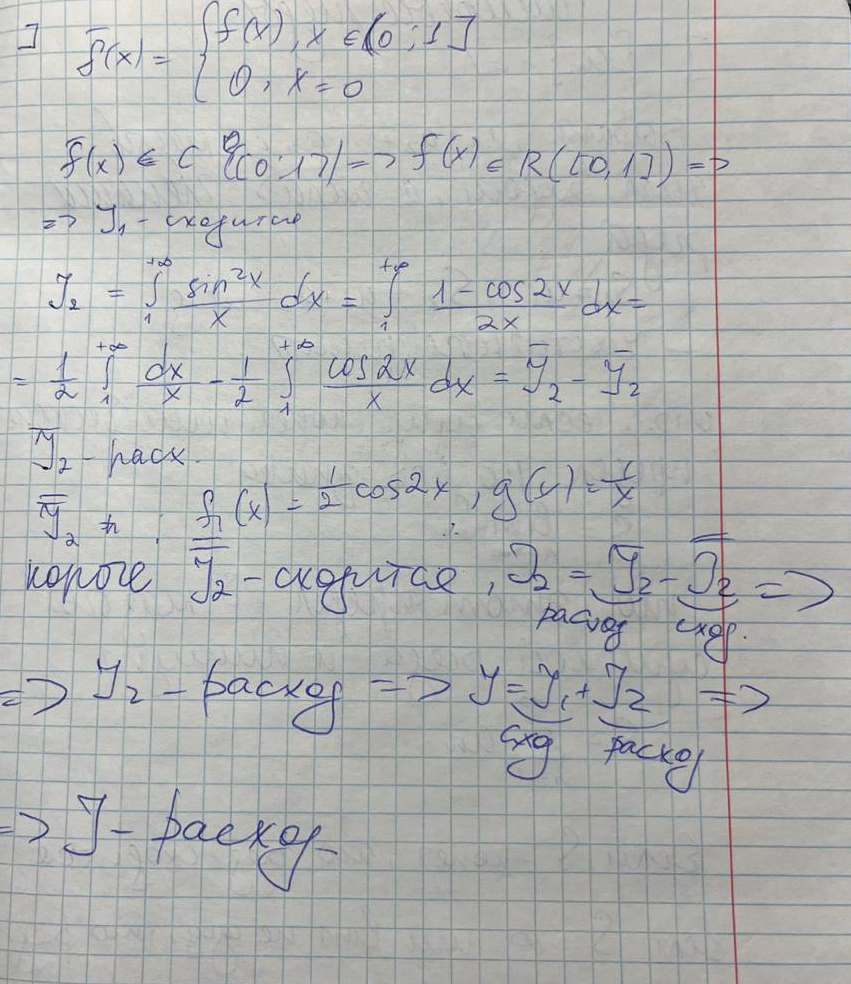 ] f̄(x) = { f(x), x ∈ (0; 1]
0, x = 0
f̄(x) ∈ C ([0; 1]) => f(x) ∈ R([0, 1]) =>
=> J₁ - сходится
J₂ = ∫₁^{+∞} sin²x/x dx = ∫₁^{+∞} (1 - cos2x)/2x dx =
= 1/2 ∫₁^{+∞} dx/x - 1/2 ∫₁^{+∞} cos2x/x dx = J̄₂ - J̿₂
J̄₂ - расх.
J̿₂ : f₁(x) = 1/2 cos2x, g(x) = 1/x
короче J̿₂ - сходится, J₂ = J̄₂ - J̿₂ =>
расход сход.
=> J₂ - расход => J = J₁ + J₂ =>
сход расход
=> J - расход.